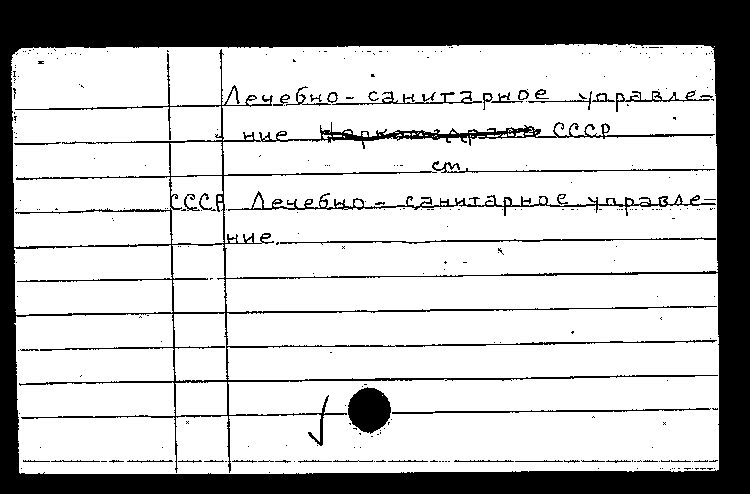 Лечебно-санитарное управле=
ние СССР
ст.
СССР Лечебно-санитарное управле=
ние.